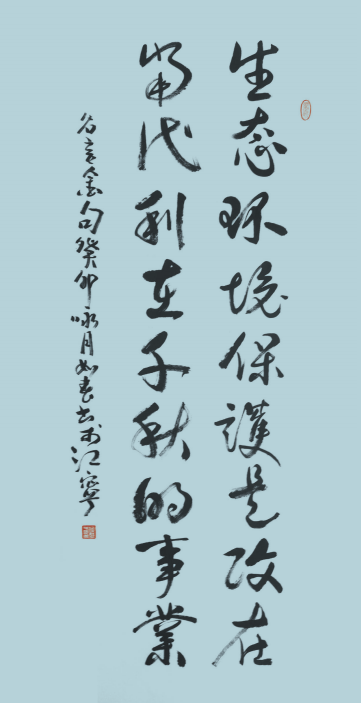 生态环境保護是功在
當代利在千秋的事業
名言金句癸卯咏月如春书於江寧